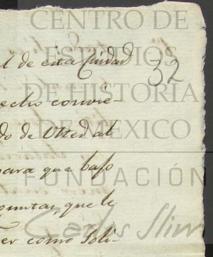 CENTRO DE
ESTUDIOS
DE HISTORIA
DE MEXICO
FUNDACIÓN
Carlos Slim
32
l de esta Ciudad
echo convie-
do de Usted al
para que bajo
que le
er como Soli-